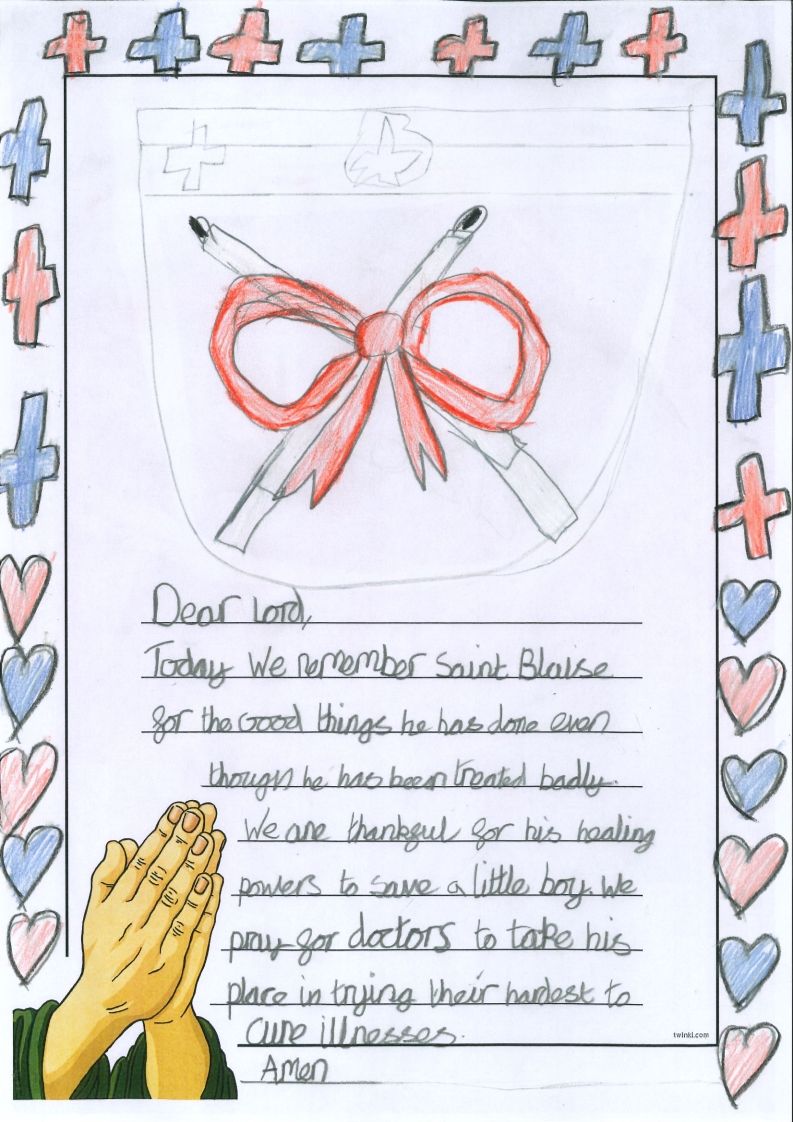 Dear Lord,
Today We remember Saint Blaise
for the Good things he has done even
though he has been treated badly.
We are thankful for his healing
powers to save a little boy. We
pray for doctors to take his
place in trying their hardest to
cure illnesses.
twinkl.com
Amen